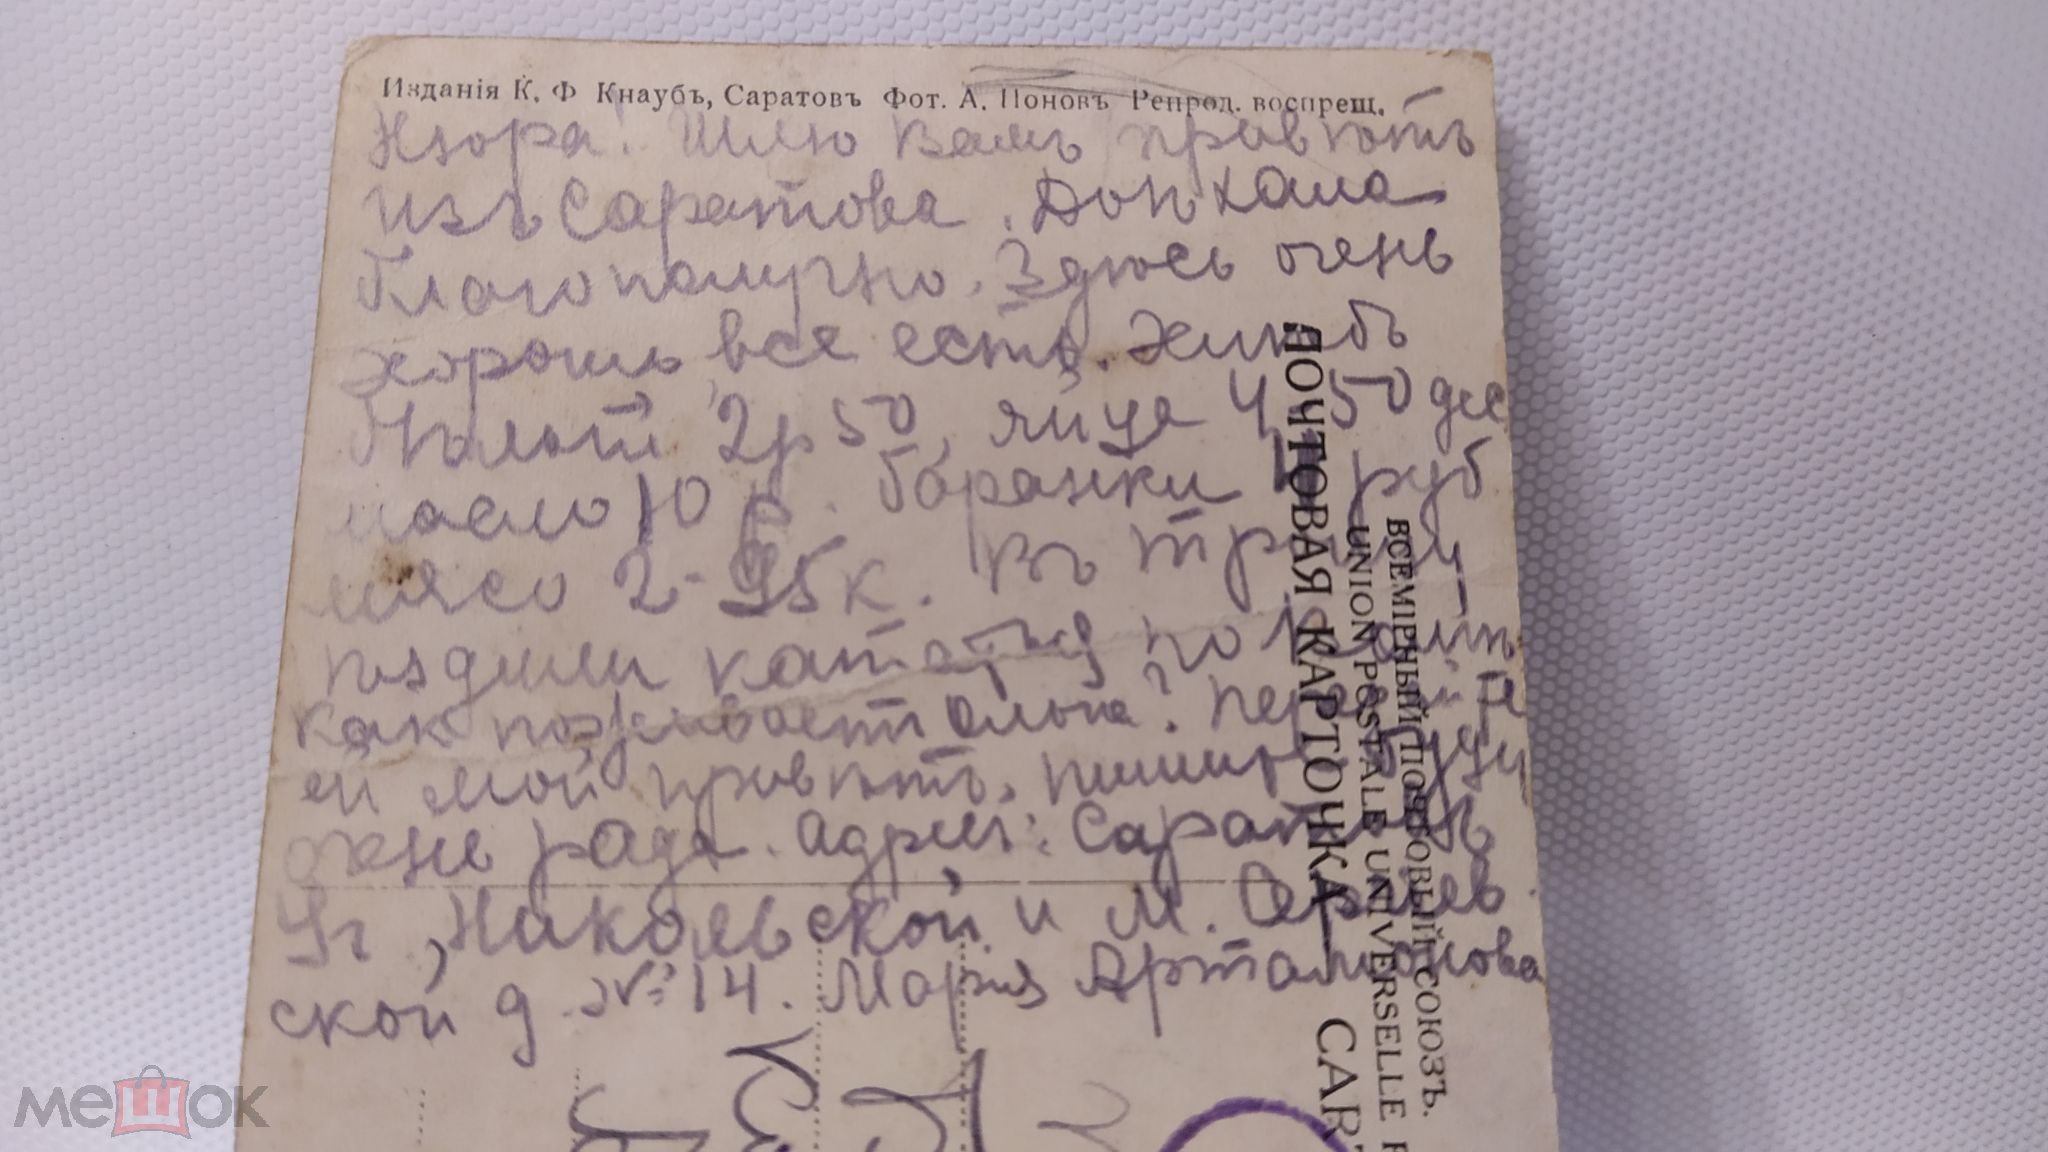 Изданія К. Ф Кнаубъ, Саратовъ Фот. А. Поповъ Репрод. воспрещ.
Нюра. Шлю Вамъ правѣтъ
изъ Саратова. Доѣхала
благополучно. Здѣсь очень
хорошъ все есть. Хлѣбъ
бѣлой 2р 50, яйца 4-50 дес
масло 10 р. баранки руб
мясо 2-95к. Въ
ѣздили кататся по
как поживает Ольга?
ей мой правѣтъ. пишите буду
очень рада. адрес: Саратовъ
Уг, Никольской и М. Сергiев
ской д. № 14. Мария Артамонова
ПОЧТОВАЯ КАРТОЧКА CAR
ВСЕМІРНЫЙ ПОЧТОВЫЙ СОЮЗЪ.
UNION POSTALE UNIVERSELLE
мешок